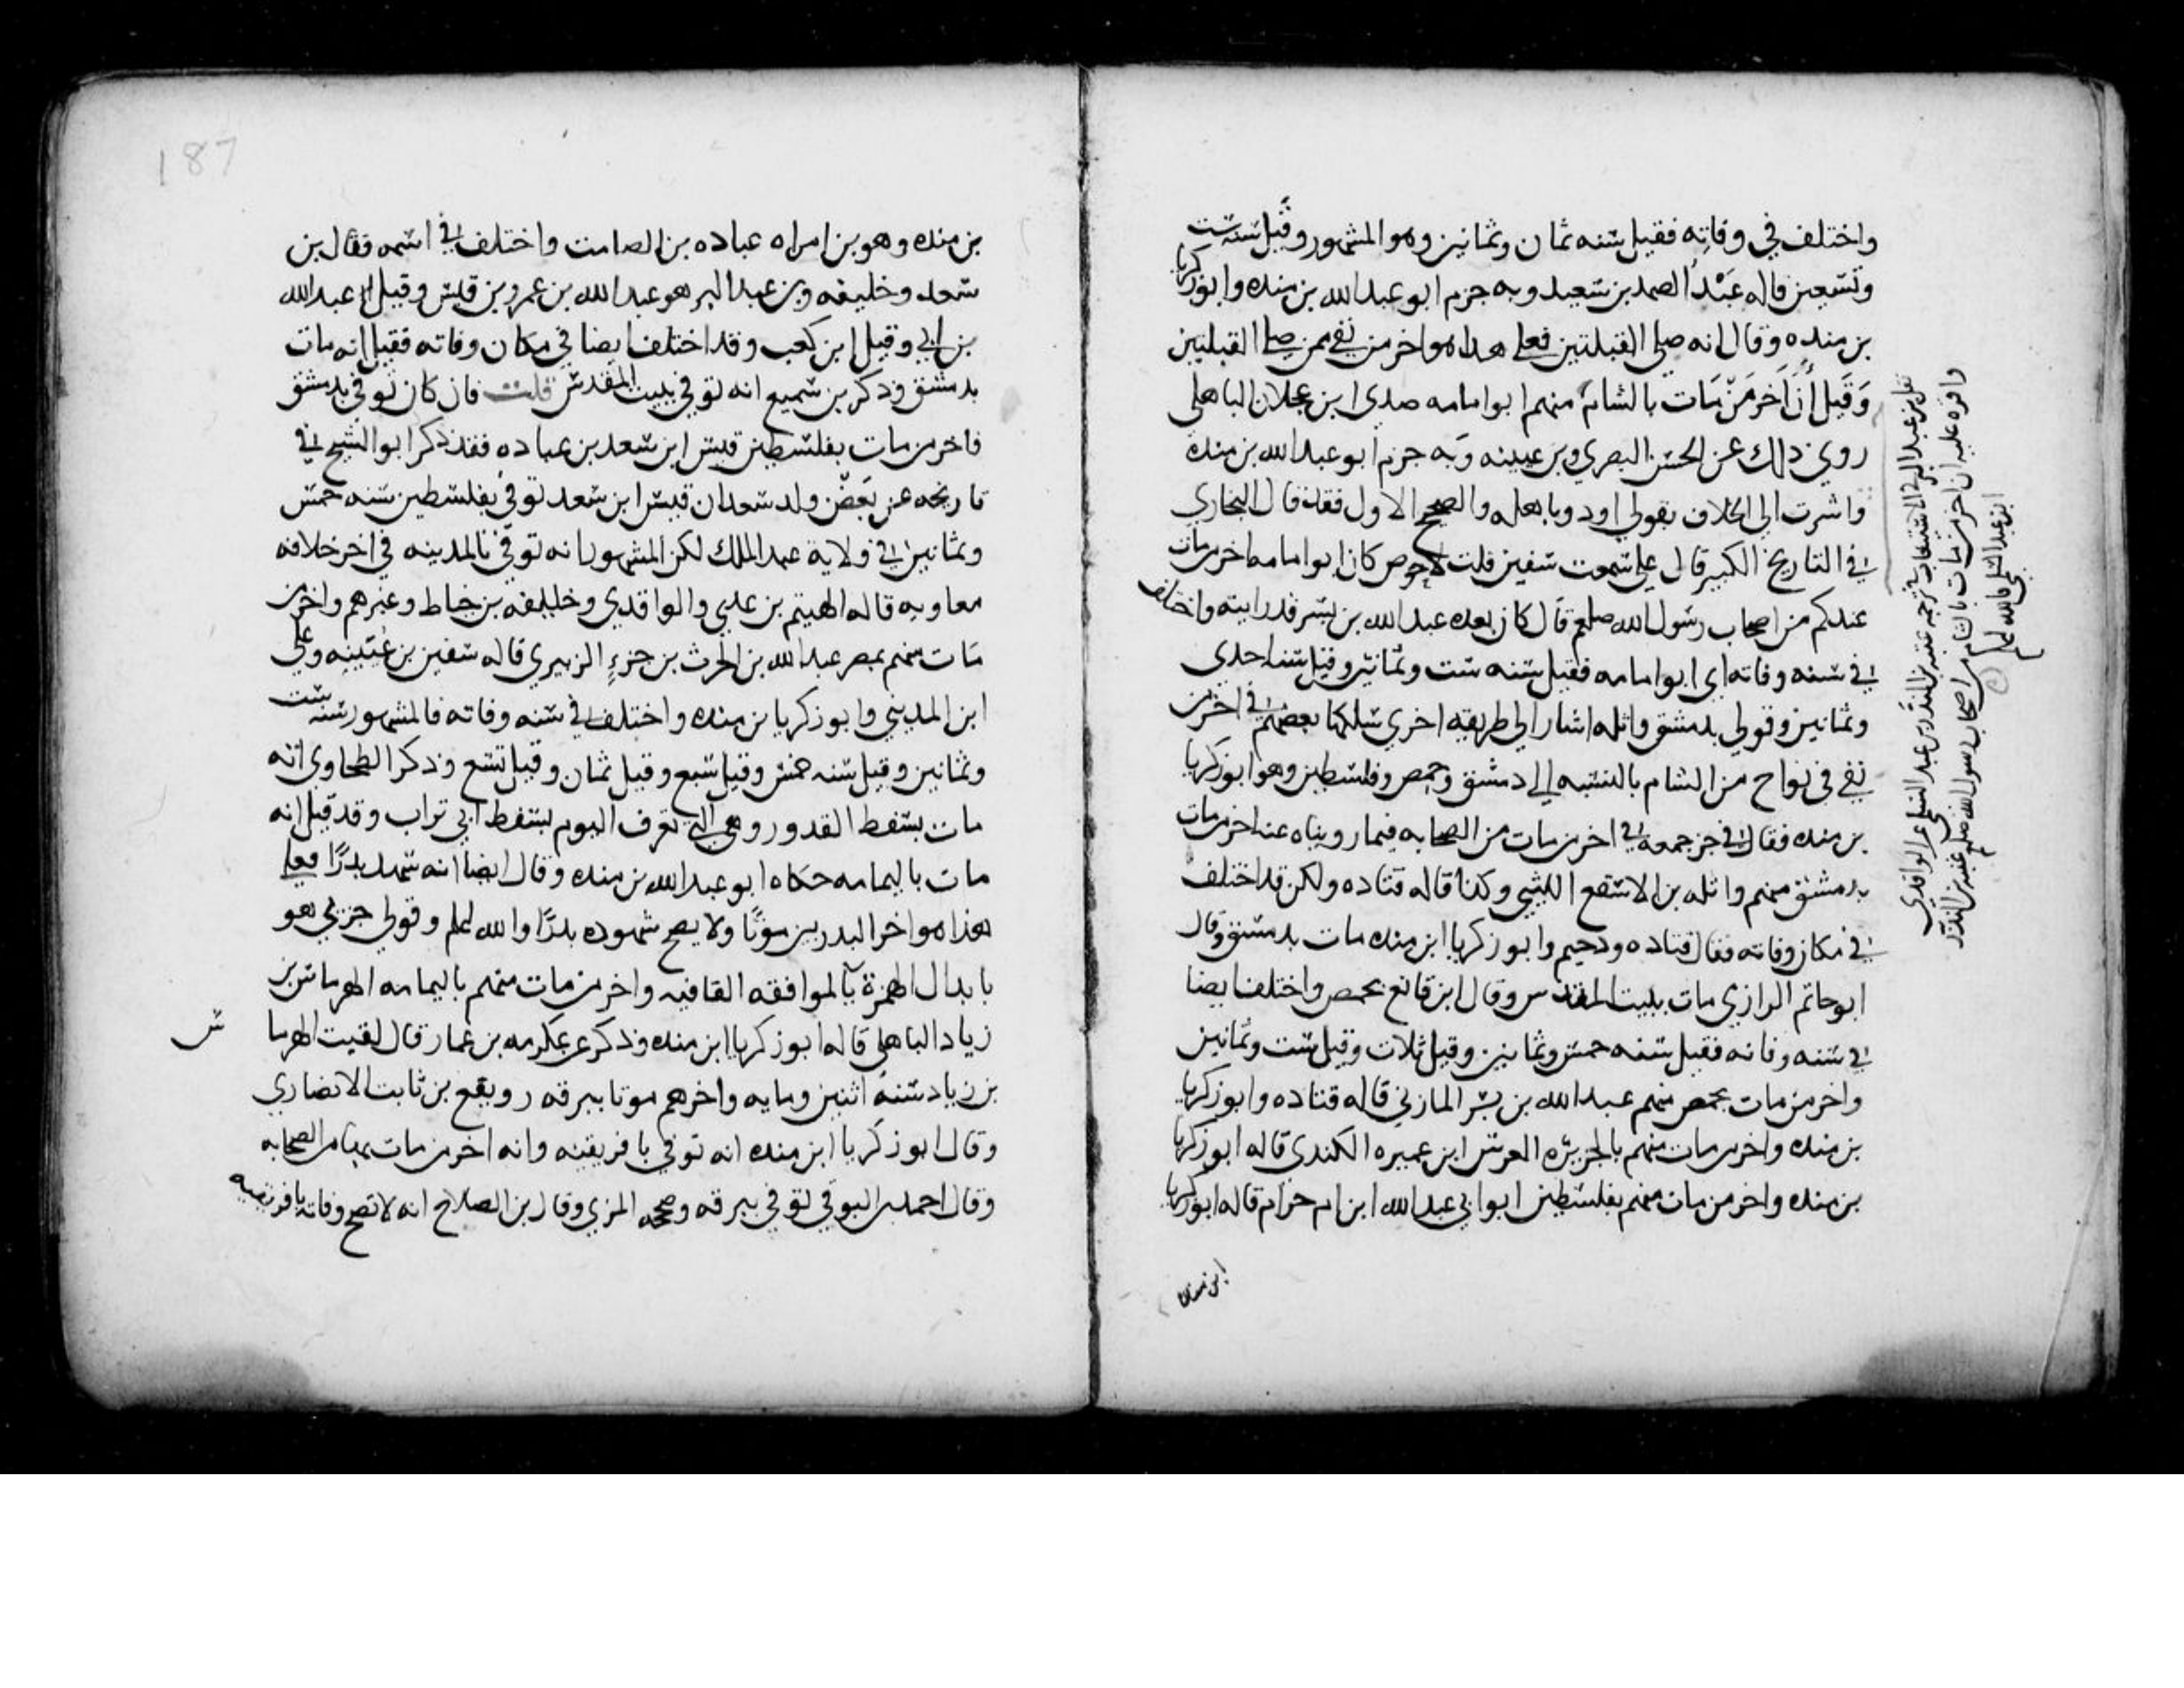 واختلف في وفاته فقيل سنه ثمان وثمانين وهو المشهور وقيل سنه ست
وتسعين قاله عبد الصمد بن سعيد وبه جزم ابو عبد الله بن منده وابو زكريا
بن منده وقال انه صلي القبلتين فعلي هذا هو اخر من بقي ممن صلي القبلتين
وقيل ان اخر من مات بالشام منهم ابو امامه صدي ابن عجلان الباهلي
روي ذلك عن الحسن البصري وبن عيينه وبه جزم ابو عبد الله بن منده
واشرت الي الخلاف بقولي اود وباهله والصحيح الاول فقد قال البخاري
في التاريخ الكبير قال علي سمعت سفين قلت لاحوص كان ابو امامه اخر من مات
عندكم من اصحاب رسول الله صلعم قال كان بعده عبد الله بن بسر قد رايته واختلف
في سنه وفاته اي ابو امامه فقيل سنه ست وثمانين وقيل سنه احدي
وثمانين وقولي بدمشق واثله اشار الي طريقه اخري سلكها بعضهم في اخر من
بقي في نواح من الشام بالنسبه الي دمشق وحمص وفلسطين وهو ابو زكريا
بن منده فقال في جز جمعه في اخر من مات من الصحابه فيما رويناه عنه اخر من مات
بدمشق منهم واثله بن الاسقع الليثي وكذا قاله قتاده ولكن قد اختلف
في مكان وفاته فقال قتاده ودحيم وابو زكريا ابن منده مات بدمشق وقال
ابو حاتم الرازي مات ببيت المقدس وقال ابن قانع بحمص واختلف ايضا
في سنه وفاته فقيل سنه خمس وثمانين وقيل ثلاث وقيل ست وثمانين
واخر من مات بحمص منهم عبد الله بن بسر المازني قاله قتاده وابو زكريا
بن منده واخر من مات منهم بالجزيره العرس ابن عميره الكندي قاله ابو زكريا
بن منده واخر من مات منهم بفلسطين ابو ابي عبد الله ابن ام حرام قاله ابو زكريا
نقل بن عبد البر في الاستيعاب في ترجمه عتبه بن الندر بن عبد السلمي عن الواقدي
واقره عليه ان اخر من مات بالشام من اصحاب رسول الله صلعم عتبه بن الندر
ابن عبد السلمي فالله اعلم
ابن منده
187
بن منده وهو بن امراه عباده بن الصامت واختلف في اسمه فقال بن
سعد وخليفه وبن عبد البر هو عبد الله بن عمرو بن قيس وقيل عبد الله
بن ابي وقيل ابن كعب وقد اختلف ايضا في مكان وفاته فقيل انه مات
بدمشق وذكر بن سميع انه توفي ببيت المقدس قلت فان كان توفي بدمشق
فاخر من مات بفلسطين قيس ابن سعد بن عباده فقد ذكر ابو الشيخ في
تاريخه عن بعض ولد سعد ان قيس ابن سعد توفي بفلسطين سنه خمس
وثمانين في ولاية عبد الملك لكن المشهور انه توفي بالمدينه في اخر خلافه
معاويه قاله الهيثم بن عدي والواقدي وخليفه بن خياط وغيرهم واخر من
مات منهم بمصر عبد الله بن الحرث بن جزء الزبيدي قاله سفين بن عيينه وعلي
ابن المديني وابو زكريا بن منده واختلف في سنه وفاته فالمشهور سنه ست
وثمانين وقيل سنه خمس وقيل سبع وقيل ثمان وقيل تسع وذكر الطحاوي انه
مات بسفط القدور وهي التي تعرف اليوم بسفط ابي تراب وقد قيل انه
مات باليمامه حكاه ابو عبد الله بن منده وقال ايضا انه شهد بدرًا فعلي
هذا هو اخر البدريين موتًا ولا يصح شهوده بدرًا والله اعلم وقولي جزي هو
بابدال الهمزة يا لموافقه القافيه واخر من مات منهم باليمامه الهرماس بن
زياد الباهلي قاله ابو زكريا ابن منده وذكر عن عكرمه بن عمار قال لقيت الهرما
س
بن زياد سنة اثنين ومايه واخرهم موتا ببرقه رويفع بن ثابت الانصاري
وقال ابو زكريا ابن منده انه توفي بافريقيه وانه اخر من مات بها من الصحابه
وقال احمد بن البرقي توفي ببرقه وصححه المزي وقال بن الصلاح انه لا تصح وفاته بافريقيه